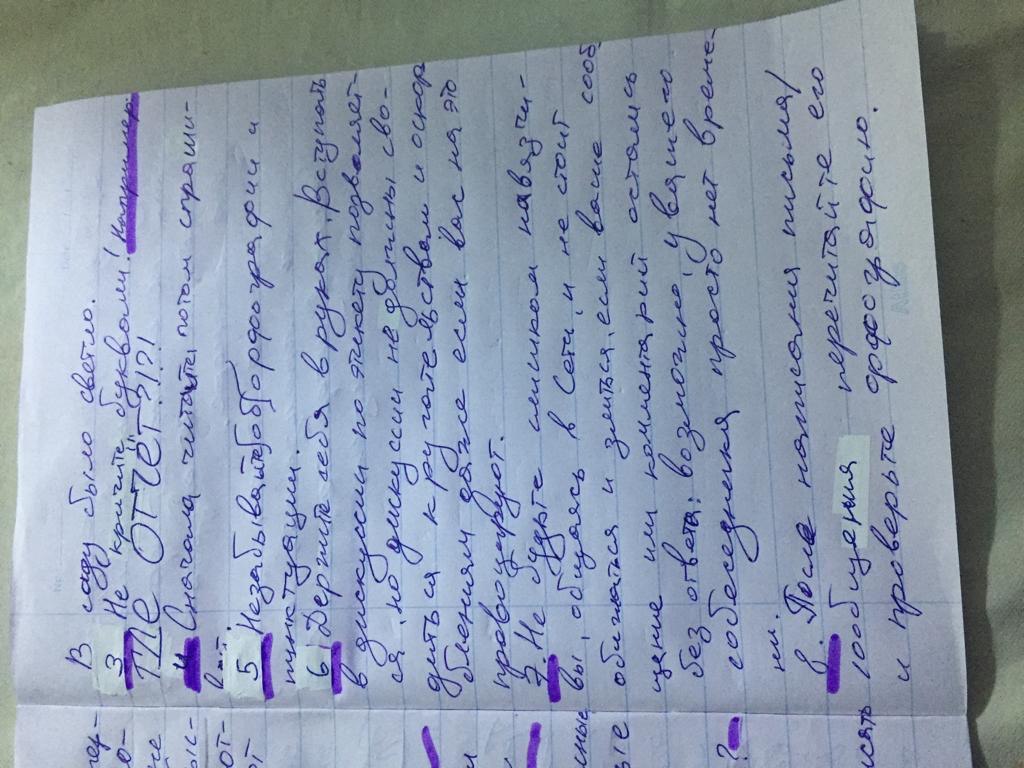 В саду было светло.
3 Не кричите буквами! Например:
ГДЕ ОТЧЁТ?!?!
4 Сначала читайте, потом спраши-
вай.
5 Незабывайтеоборфографии и
пунктуации.
6 Держите себя в руках. Вступать
в дискуссии по этикету позволяет-
ся, но дискуссии не должны сво-
диться к ругательствам и оскор
блениям даже если вас на это
провоцируют.
7. Не будьте слишком навязчи-
вы, общаясь в Сети, и не стоит
обижаться и злиться, если ваше сооб
щение или комментарий остались
без ответа: возможно, у вашего
собеседника просто нет време-
ни.
8. После написания письма/
сообщения перечитайте его
и проверьте орфографию.